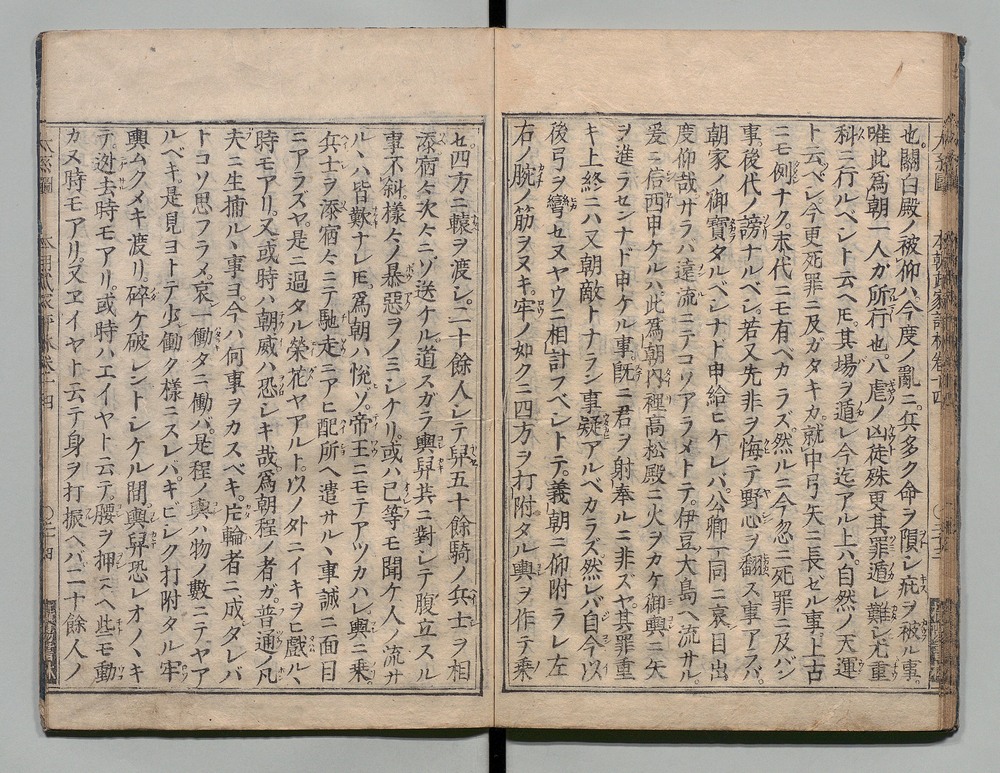 也關白殿ノ被仰ハ今度ノ亂ニ兵多ク命ヲ隕シ疵ヲ被ル事。
唯此爲朝一人ガ所行也。八虐ノ凶徒殊更其罪遁レ難シ尤重
科ニ行ルベシト云ヘ𪜈。其場ヲ遁レ今迄アル上ハ自然ノ天運
ト云ベシ今更死罪ニ及ガタキカ。就中弓矢ニ長ゼル事上古
ニモ例ナク。末代ニモ有ベカラズ。然ルニ今忽ニ死罪ニ及バン
事。後代ノ謗ナルベシ。若又先非ヲ悔テ野心ヲ翻ス事アラバ。
朝家ノ御寶タルベシナド申給ヒケレバ。公卿一同ニ哀目出
度仰哉サラバ遠流ニテコソアラメトテ。伊豆大島ヘ流サル。
爰ニ信西申ケルハ此爲朝内裡高松殿ニ火ヲカケ御輿ニ矢
ヲ進ラセンナド申ケル事。既ニ君ヲ射奉ルニ非ズヤ。其罪重
キ上終ニハ又朝敵トナラン事疑アルベカラズ。然レバ自今以
後弓ヲ彎セヌヤウニ相計フベシトテ。義朝ニ仰附ラレ左
右ノ腕ノ筋ヲヌキ。牢ノ如クニ四方ヲ打附タル輿ヲ作テ乘
セ四方ニ轅ヲ渡シ。二十餘人シテ舁五十餘騎ノ兵士ヲ相
添宿々次々ニゾ送ケル。道スガラ輿舁共ニ對シテ腹立スル
事不斜。樣々ノ暴惡ヲノミシケリ。或ハ己等モ聞ケ人ノ流サ
ルヽハ皆歎ナレ𪜈爲朝ハ悦ゾ。帝王ニモテアツカハレ輿ニ乘。
兵士ヲ添宿々ニテ馳走ニアヒ配所ヘ遣サルヽ事誠ニ面目
ニアラズヤ是ニ過タル榮花ヤアルト。以ノ外ニイキヲヒ戲ルヽ
時モアリ。又或時ハ朝威ハ恐シキ哉。爲朝程ノ者ガ。普通ノ凡
夫ニ生捕ルヽ事ヨ。今ハ何事ヲカスベキ。片輪者ニ成タレバ
トコソ思フラメ。哀一働タニ働バ。是程ノ輿ハ物ノ數ニテヤア
ルベキ。是見ヨトテ少働ク樣ニスレバ。キビシク打附タル牢
輿ムクメキ渡リ。碎ケ破レントシケル間。輿舁恐レオノヽキ
テ。迯去時モアリ。或時ハエイヤト云テ。腰ヲ押スヘ此ニモ動
カヌ時モアリ。又ヱイヤト云テ身ヲ打振ヘバ二十餘人ノ